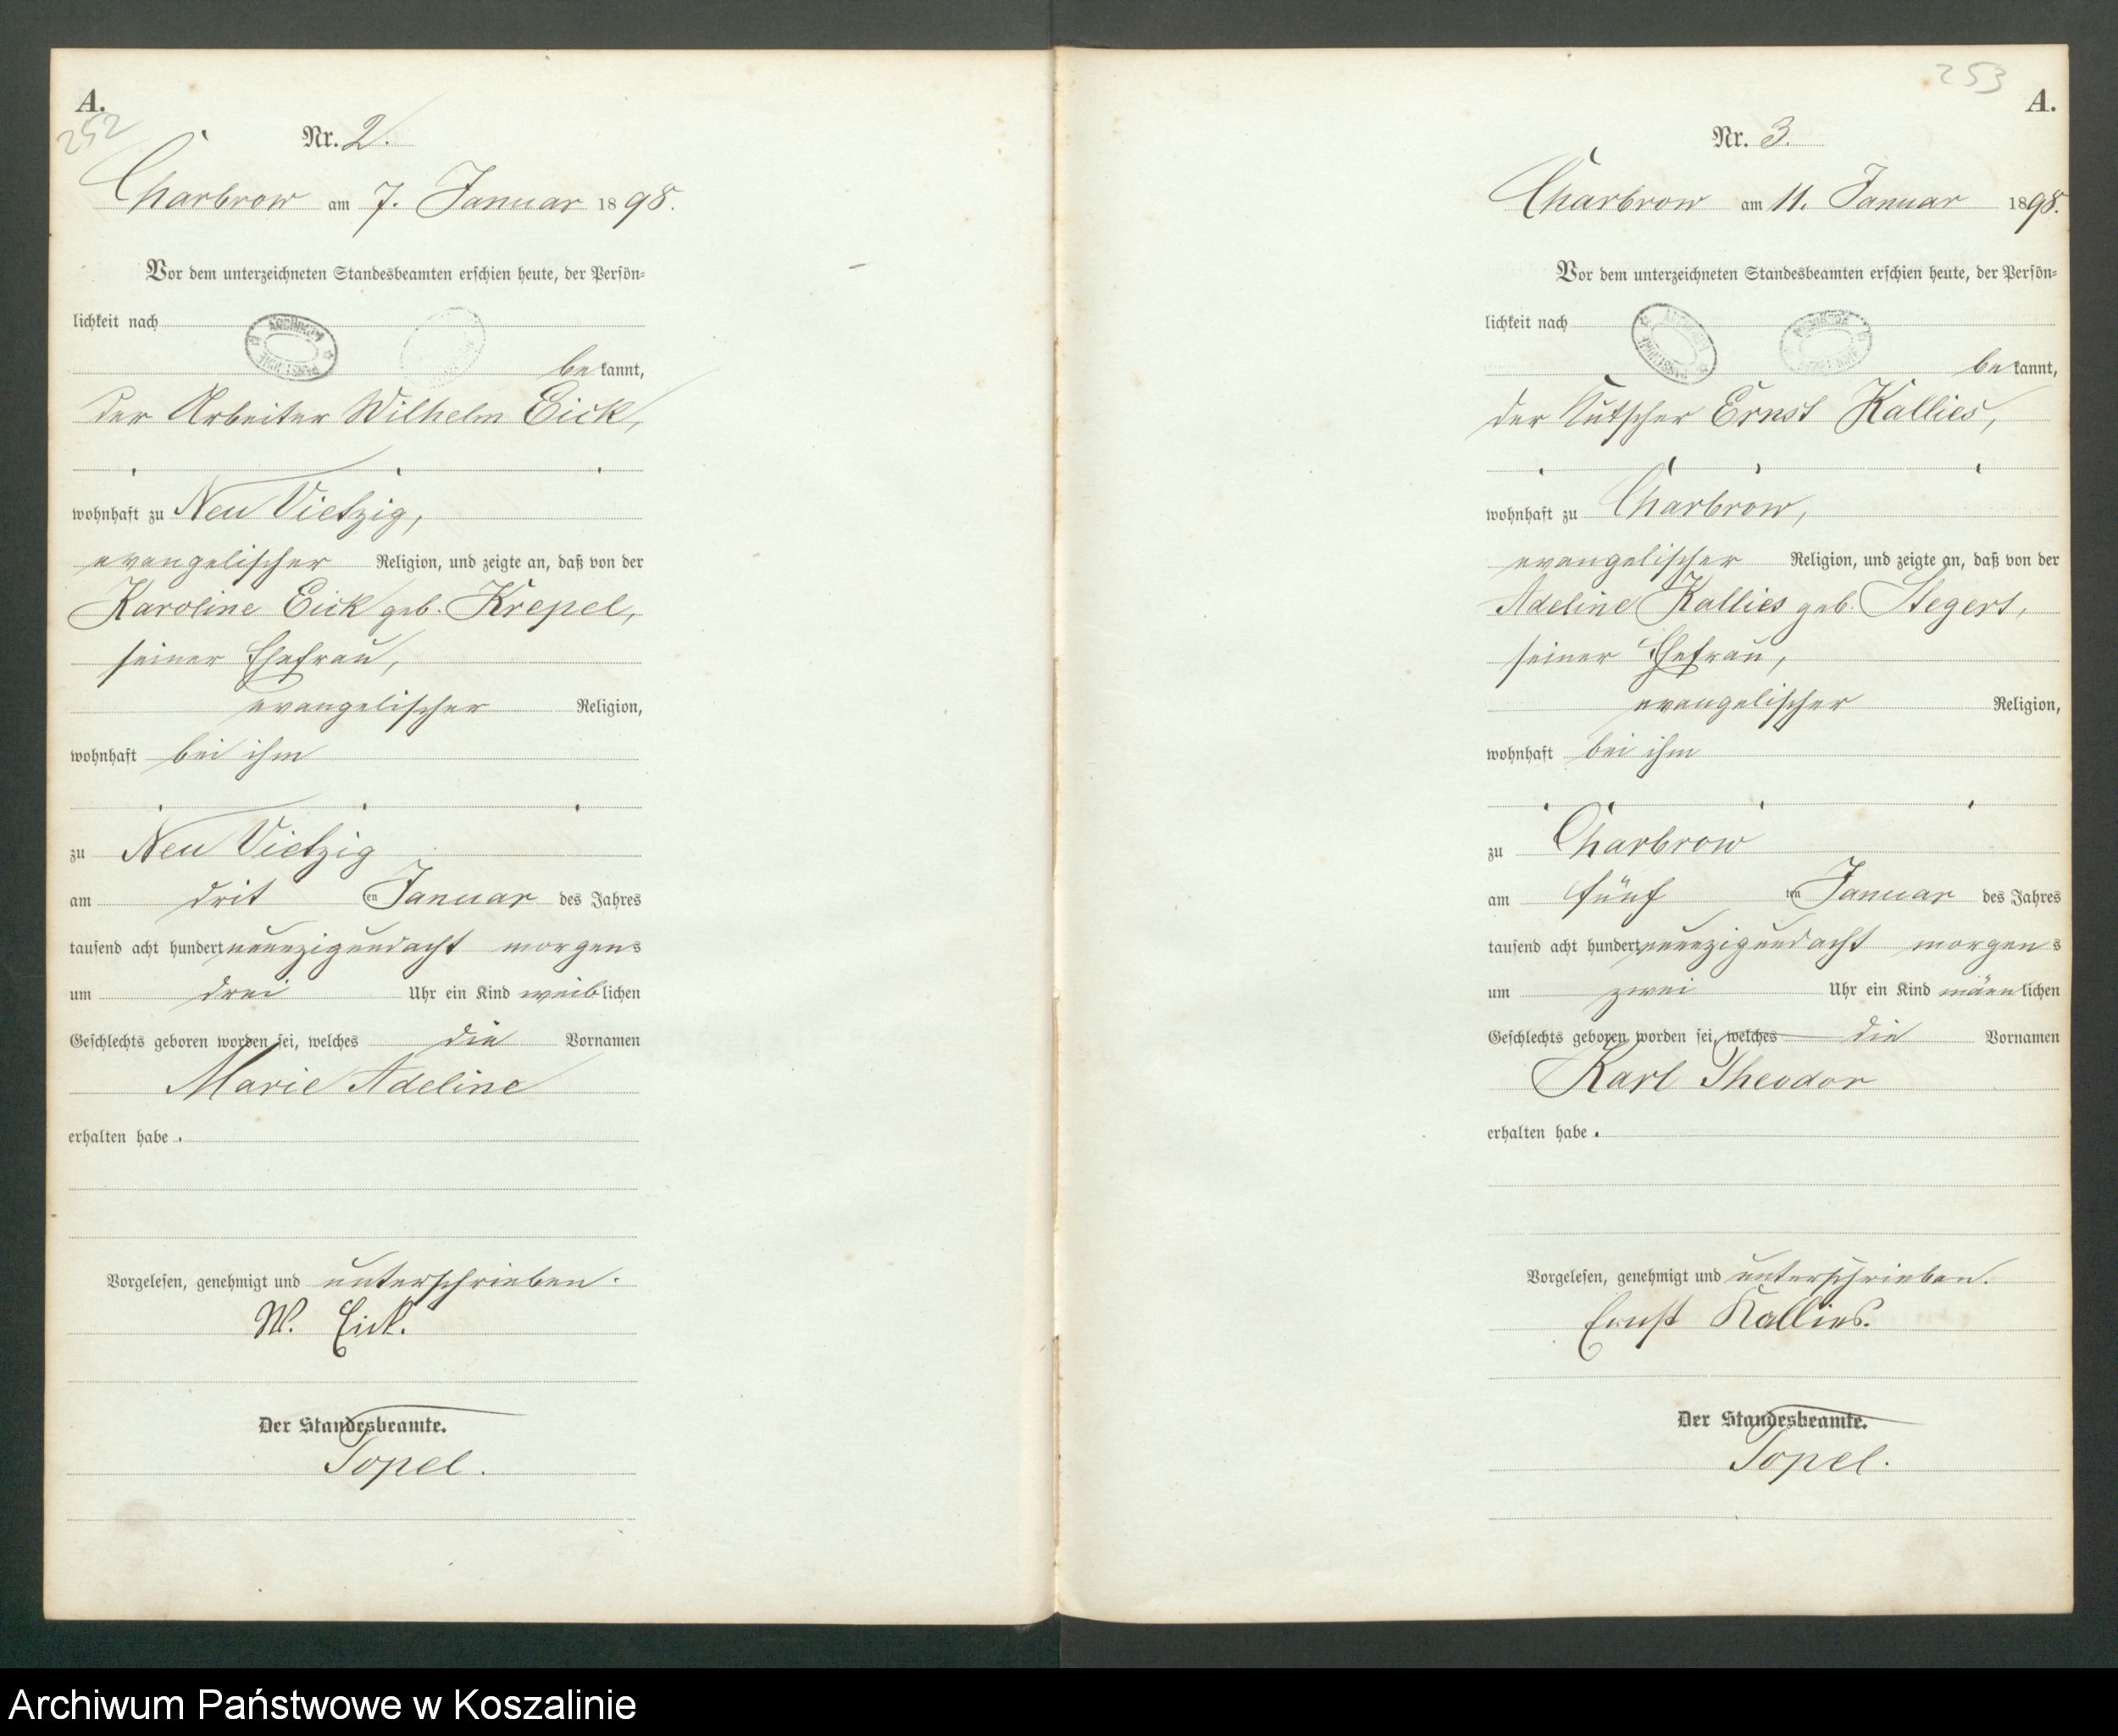 A.
252
Nr. 2.
Charbrow am 7. Januar 1898.
Vor dem unterzeichneten Standesbeamten erschien heute, der Persön-
lichkeit nach
bekannt,
der Arbeiter Wilhelm Eick,
wohnhaft zu Neu Vietzig,
evangelischer Religion, und zeigte an, daß von der
Karoline Eick geb. Krepel,
seiner Ehefrau,
evangelischer Religion,
wohnhaft bei ihm
zu Neu Vietzig
am dritten Januar des Jahres
tausend acht hundert neunzigundacht morgens
um drei Uhr ein Kind weiblichen
Geschlechts geboren worden sei, welches die Vornamen
Marie Adeline
erhalten habe.
Vorgelesen, genehmigt und unterschrieben.
W. Eick.
Der Standesbeamte.
Topel.
253
A.
Nr. 3.
Charbrow am 11. Januar 1898.
Vor dem unterzeichneten Standesbeamten erschien heute, der Persön-
lichkeit nach
bekannt,
der Kutscher Ernst Kallies,
wohnhaft zu Charbrow,
evangelischer Religion, und zeigte an, daß von der
Adeline Kallies geb. Stegert,
seiner Ehefrau,
evangelischer Religion,
wohnhaft bei ihm
zu Charbrow
am fünften Januar des Jahres
tausend acht hundert neunzigundacht morgens
um zwei Uhr ein Kind männlichen
Geschlechts geboren worden sei, welches die Vornamen
Karl Theodor
erhalten habe.
Vorgelesen, genehmigt und unterschrieben.
Ernst Kallies.
Der Standesbeamte.
Topel.
Archiwum Państwowe w Koszalinie